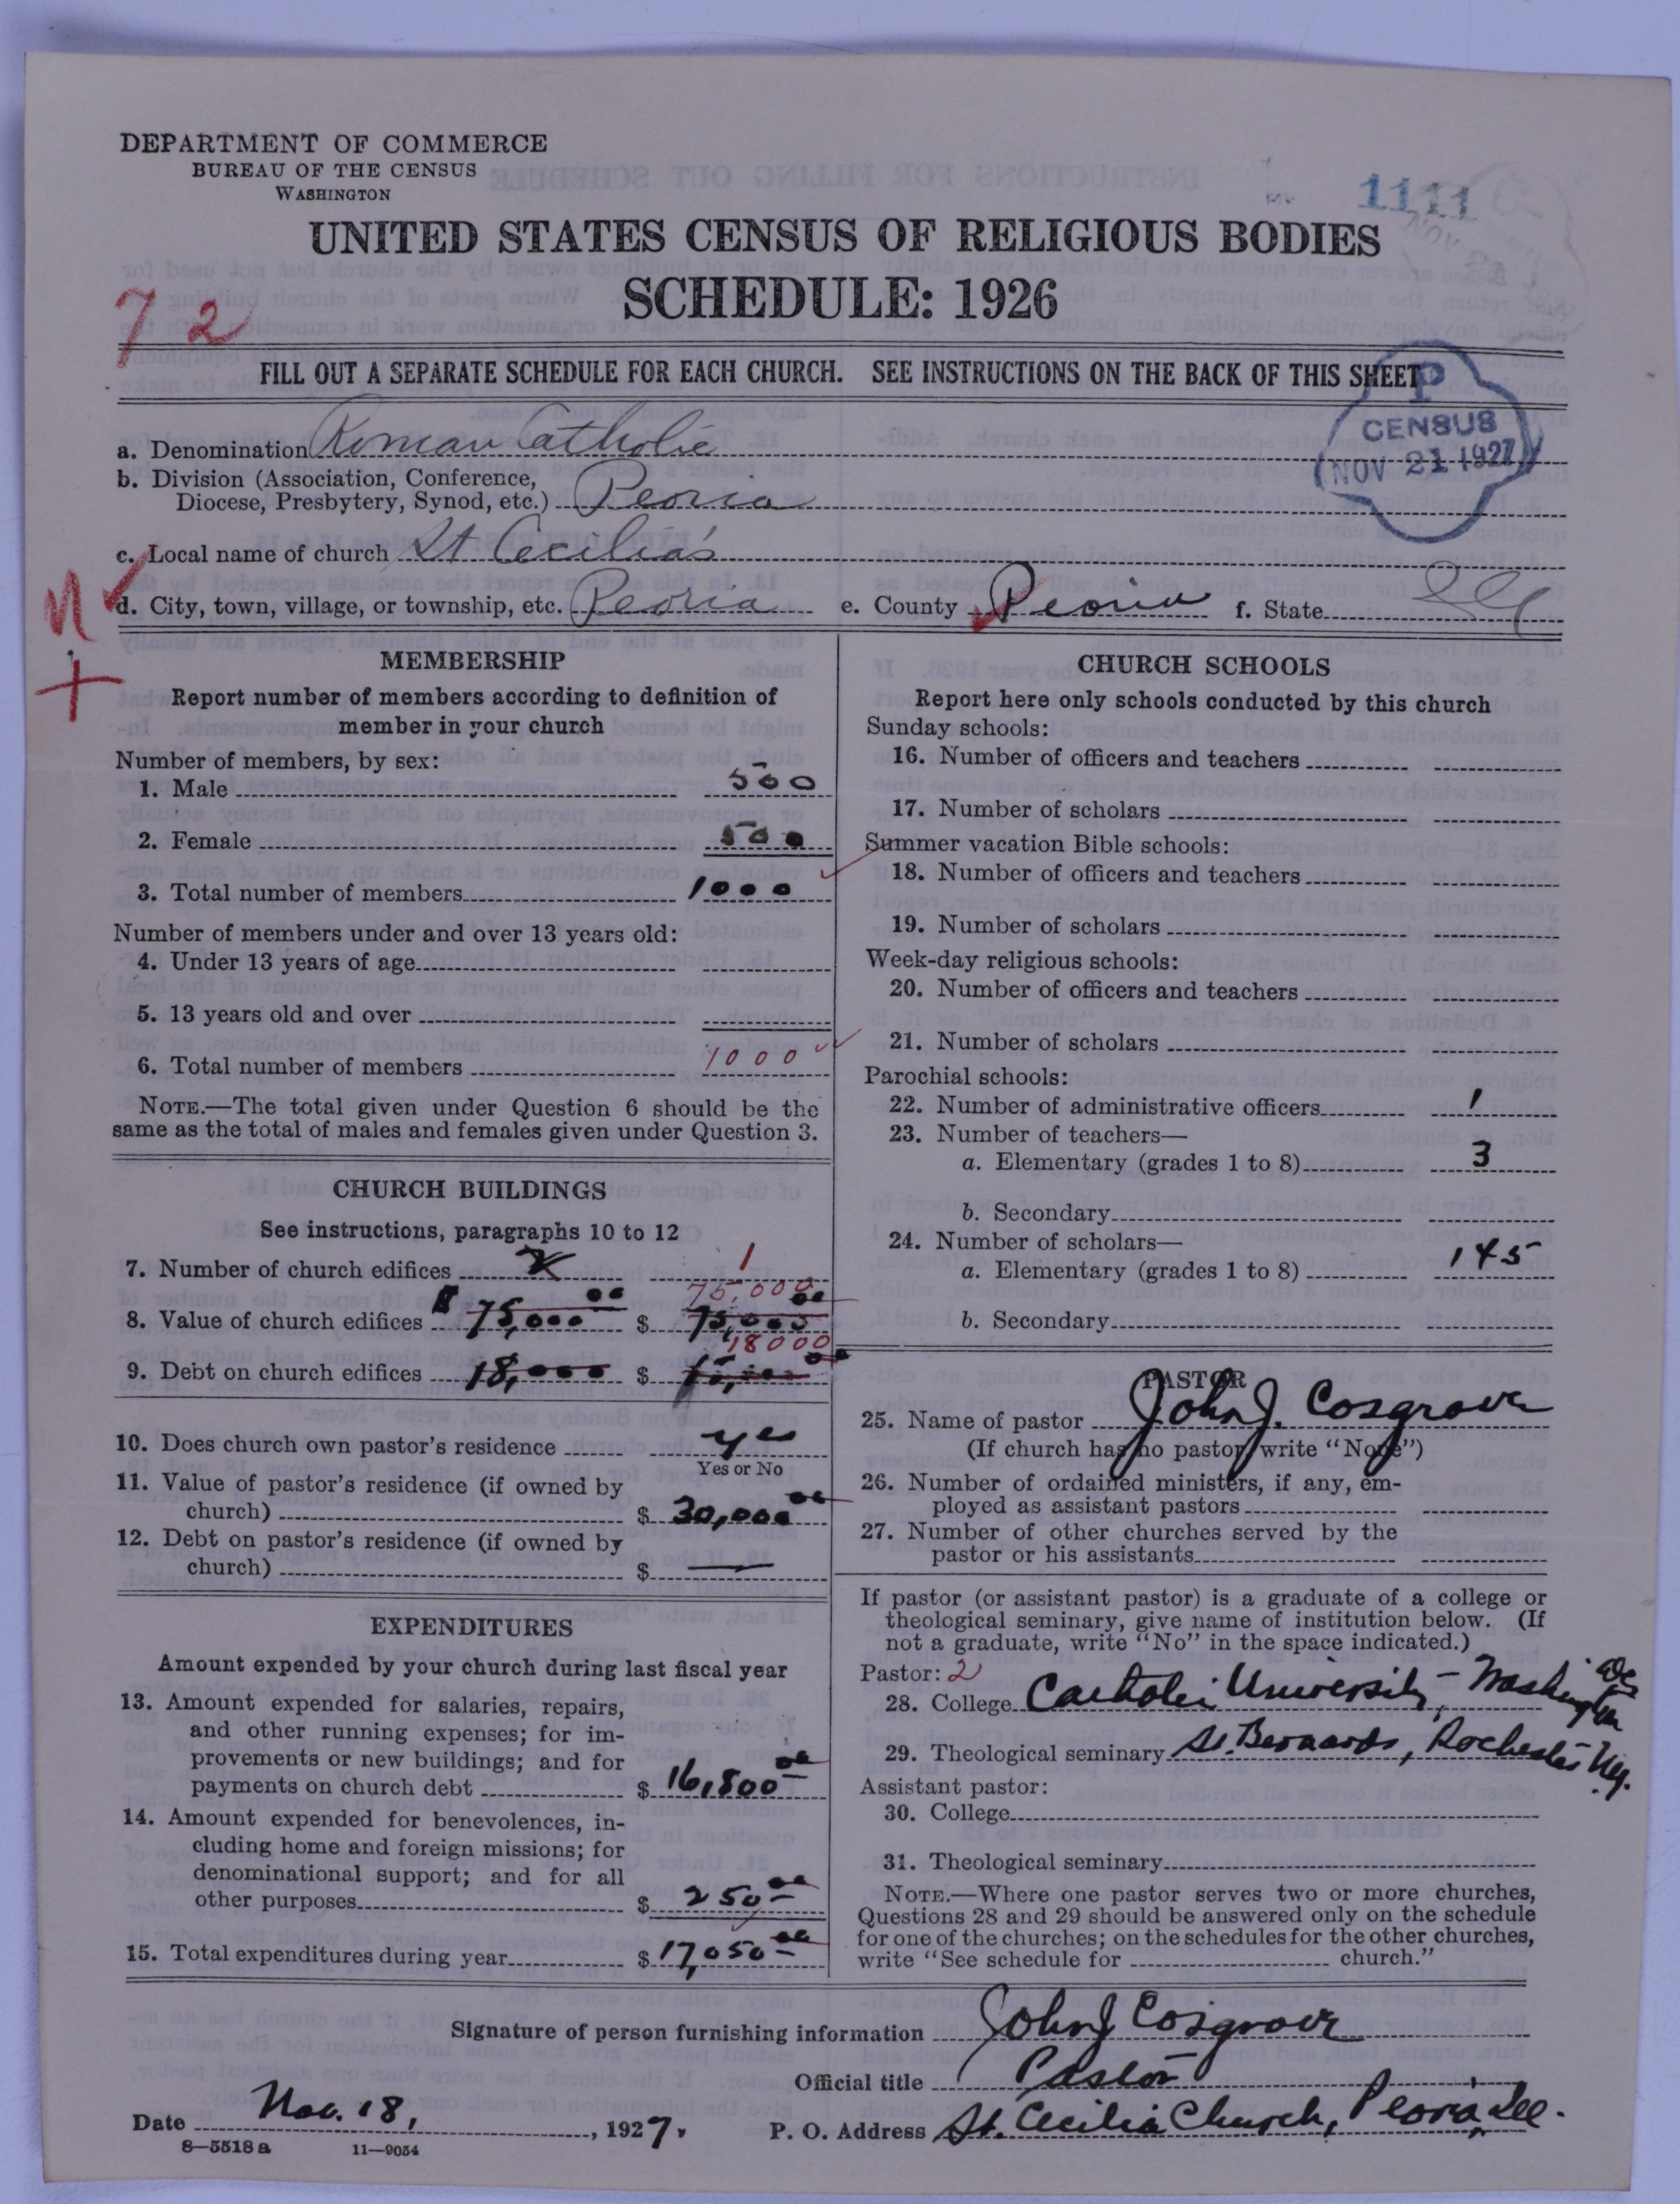 DEPARTMENT OF COMMERCE
BUREAU OF THE CENSUS
WASHINGTON
1111
UNITED STATES CENSUS OF RELIGIOUS BODIES
SCHEDULE: 1926
72
FILL OUT A SEPARATE SCHEDULE FOR EACH CHURCH. SEE INSTRUCTIONS ON THE BACK OF THIS SHEET
P
CENSUS
NOV 21 1927
a. Denomination Roman Catholic
b. Division (Association, Conference,
Diocese, Presbytery, Synod, etc.) Peoria
c. Local name of church St Cecilia's
d. City, town, village, or township, etc. Peoria e. County Peoria f. State Ill
MEMBERSHIP
Report number of members according to definition of
member in your church
Number of members, by sex:
1. Male 500
2. Female 500
3. Total number of members 1000
Number of members under and over 13 years old:
4. Under 13 years of age
5. 13 years old and over
6. Total number of members 1000
NOTE.—The total given under Question 6 should be the
same as the total of males and females given under Question 3.
CHURCH BUILDINGS
See instructions, paragraphs 10 to 12
7. Number of church edifices 1
75,000
8. Value of church edifices $75,000 00 $ 75,000 00
18000
9. Debt on church edifices 18,000 $ 15,000 00
10. Does church own pastor's residence yes
Yes or No
11. Value of pastor's residence (if owned by
church) $ 30,000 00
12. Debt on pastor's residence (if owned by
church) $ —
EXPENDITURES
Amount expended by your church during last fiscal year
13. Amount expended for salaries, repairs,
and other running expenses; for im-
provements or new buildings; and for
payments on church debt $ 16,800 00
14. Amount expended for benevolences, in-
cluding home and foreign missions; for
denominational support; and for all
other purposes $ 250 00
15. Total expenditures during year $ 17,050 00
CHURCH SCHOOLS
Report here only schools conducted by this church
Sunday schools:
16. Number of officers and teachers
17. Number of scholars
Summer vacation Bible schools:
18. Number of officers and teachers
19. Number of scholars
Week-day religious schools:
20. Number of officers and teachers
21. Number of scholars
Parochial schools:
22. Number of administrative officers 1
23. Number of teachers—
a. Elementary (grades 1 to 8) 3
b. Secondary
24. Number of scholars—
a. Elementary (grades 1 to 8) 145
b. Secondary
PASTOR
25. Name of pastor John J. Cosgrove
(If church has no pastor, write "None")
26. Number of ordained ministers, if any, em-
ployed as assistant pastors
27. Number of other churches served by the
pastor or his assistants
If pastor (or assistant pastor) is a graduate of a college or
theological seminary, give name of institution below. (If
not a graduate, write "No" in the space indicated.)
Pastor: 2
28. College Catholic University – Washington DC
29. Theological seminary St. Bernards, Rochester N.Y.
Assistant pastor:
30. College
31. Theological seminary
NOTE.—Where one pastor serves two or more churches,
Questions 28 and 29 should be answered only on the schedule
for one of the churches; on the schedules for the other churches,
write "See schedule for church."
Signature of person furnishing information John J Cosgrove
Official title Pastor
Date Nov. 18, 1927. P. O. Address St. Cecilia Church, Peoria, Ill.
8—5518 a 11—9054